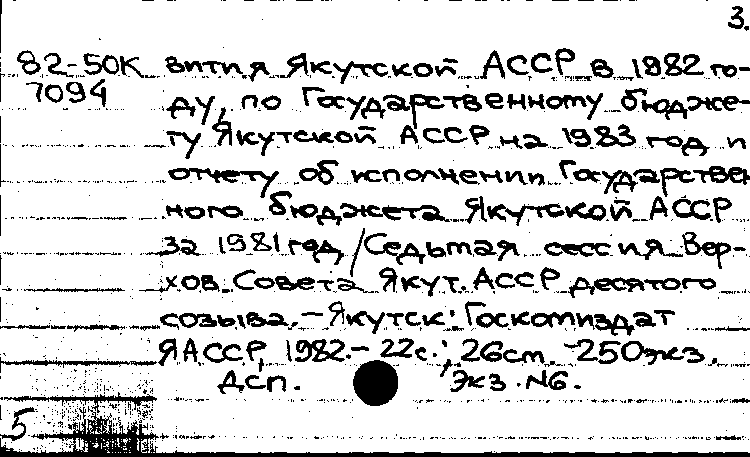 3.
82-50К вития Якутской АССР в 1982 го-
7094 ду, по Государственному бюдже-
ту Якутской АССР на 1983 год и
отчету об исполнении Государствен
ного бюджета Якутской АССР
за 1981 год /Седьмая сессия Вер-
хов. Совета Якут. АССР десятого
созыва. – Якутск: Госкомиздат
ЯАССР, 1982. – 22с.; 26см. – 250экз.
Дсп. Экз. N6.
5